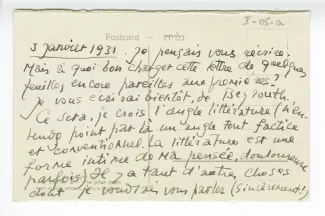 I-05-a
Postcard — גלויה
3 Janvier 1931. Je pensais vous récrire.
Mais à quoi bon charger cette lettre de quelques
feuilles encore, pareilles aux premières?
Je vous écrirai bientôt, de Beyrouth.
Ce sera, je crois, l'angle littérature (n'en-
tendez point par là un angle tout factice
et conventionnel. La littérature est une
forme intime de ma pensée, douloureuse
parfois) Il y a tant d'autres choses
dont je voudrais vous parler (sincèrement!)